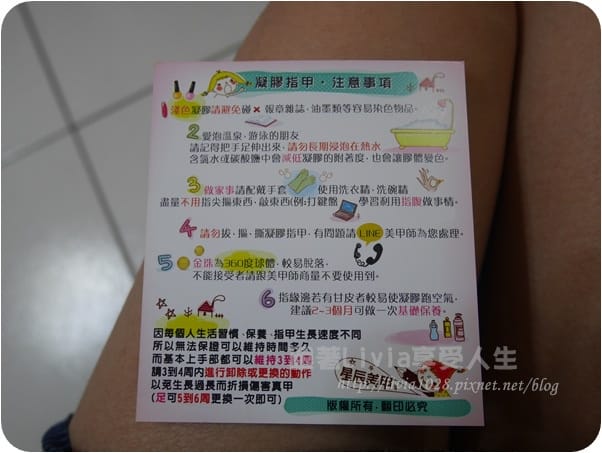 凝膠指甲‧注意事項
1 淺色凝膠請避免碰✖報章雜誌、油墨類等容易染色物品。
2 愛泡溫泉、游泳的朋友
請記得把手足伸出來，請勿長期浸泡在熱水
含氯水或碳酸鹽中會減低凝膠的附著度，也會讓膠體變色。
3 做家事請配戴手套 使用洗衣精、洗碗精
盡量不用指尖摳東西、敲東西(例:打鍵盤 學習利用指腹做事情。
4 請勿拔、摳、撕凝膠指甲，有問題請LINE美甲師為您處理。
5 金珠為360度球體，較易脫落，
不能接受者請跟美甲師商量不要使用到。
6 指緣邊若有甘皮者較易使凝膠跑空氣，
建議2~3個月可做一次基礎保養。
因每個人生活習慣、保養、指甲生長速度不同
所以無法保證可以維持時間多久
而基本上手部都可以維持3到4周
請3到4周內進行卸除或更換的動作
以免生長過長而折損傷害真甲
(足可5到6周更換一次即可)
星辰美甲
版權所有，翻印必究
著Livia享受人生
http://livia1028.pixnet.net/blog